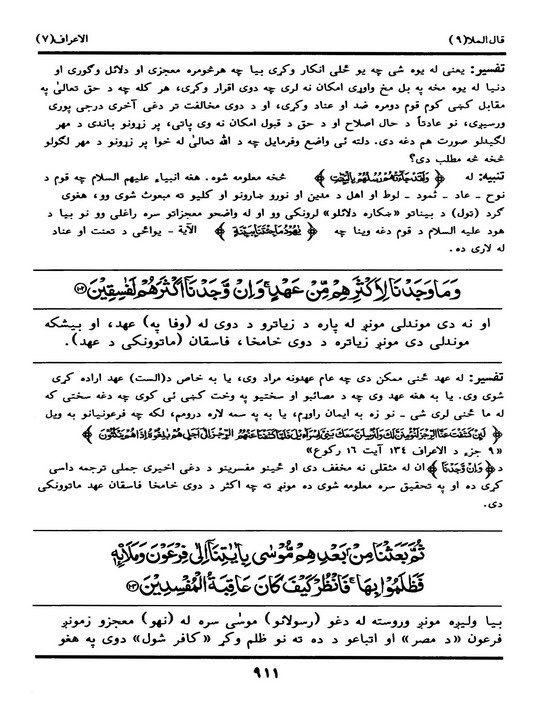 قال الملا(٩)
الاعراف(٧)
تفسیر: یعنی له یوه شی چه یو ځلی انکار وکړی بیا چه هرڅومره معجزی او دلائل وگوری او
دنیا له یوه مخه په بل مخ واوړی امکان نه لری چه دوی اقرار وکړی، هر کله چه د حق تعالیٰ په
مقابل کښی کوم قوم دومره ضد او عناد وکړی، او د دوی مخالفت تر دغی آخری درجی پوری
ورسیږی، نو عادتاً د حال اصلاح او د حق د قبول امکان نه وی پاتی، پر زړونو باندی د مهر
لگیدلو صورت هم دغه دی. دلته ئی واضح وفرمایل چه د الله تعالیٰ له خوا پر زړونو د مهر لگولو
څخه څه مطلب دی؟
تنبیه: له ﴿ وَلَقَدْ جَآءَتْهُمْ رُسُلُهُمْ بِالْبَيِّنٰتِ ﴾ څخه معلومه شوه. هغه انبیاء علیهم السلام چه قوم د
نوح - عاد - ثمود - لوط او اهل د مدین او نورو ښارونو او کلیو ته مبعوث شوی وو، هغوی
گرد (تول) د بیناتو «ښکاره دلائلو» لرونکی وو او له واضحو معجزاتو سره راغلی وو نو بیا د
هود علیه السلام د قوم دغه وینا چه ﴿ يٰهُوْدُ مَا جِئْتَنَا بِبَيِّنَةٍ ﴾ الآیة - یواځی د تعنت او عناد
له لاری ده.
وَمَا وَجَدْنَا لِاَكْثَرِهِمْ مِّنْ عَهْدٍ ۚ وَاِنْ وَّجَدْنَآ اَكْثَرَهُمْ لَفٰسِقِيْنَ ﴿١٠٢﴾
او نه دی موندلی مونږ له پاره د زیاترو د دوی له (وفا په) عهد، او بیشکه
موندلی دی مونږ زیاتره د دوی خامخا، فاسقان (ماتوونکی د عهد).
تفسیر: له عهد ځنی ممکن دی چه عام عهدونه مراد وی، یا به خاص د(الست) عهد اراده کړی
شوی وی. یا به هغه عهد وی چه د مصائبو او سختیو په وخت کښی ئی کوی چه دغه سختی که
له ما ځنی لری شی - نو زه به ایمان راوړم، یا به په سمه لاره درومم، لکه چه فرعونیانو به ویل
﴿ لَئِنْ كَشَفْتَ عَنَّا الرِّجْزَ لَنُؤْمِنَنَّ لَكَ وَلَنُرْسِلَنَّ مَعَكَ بَنِيْٓ اِسْرَآءِيْلَ فَلَمَّا كَشَفْنَا عَنْهُمُ الرِّجْزَ اِلٰٓى اَجَلٍ هُمْ بٰلِغُوْهُ اِذَا هُمْ يَنْكُثُوْنَ ﴾
«٩ جزء د الاعراف ١٣٤ آیت ١٦ رکوع»
د﴿ وَاِنْ وَّجَدْنَآ ﴾ ان له مثقلی نه مخفف دی او ځینو مفسرینو د دغی اخیری جملی ترجمه داسی
کړی ده او په تحقیق سره معلومه شوی ده مونږ ته چه اکثر د دوی خامخا فاسقان عهد ماتوونکی
دی.
ثُمَّ بَعَثْنَا مِنْۢ بَعْدِهِمْ مُّوْسٰى بِاٰيٰتِنَآ اِلٰى فِرْعَوْنَ وَمَلَا۟ئِهٖ
فَظَلَمُوْا بِهَا ۚ فَانْظُرْ كَيْفَ كَانَ عَاقِبَةُ الْمُفْسِدِيْنَ ﴿١٠٣﴾
بیا ولیږه مونږ وروسته له دغو (رسولانو) موسٰی سره له (نهو) معجزو زمونږ
فرعون «د مصر» او اتباعو د ده ته نو ظلم وکړ «کافر شول» دوی په هغو
٩١١